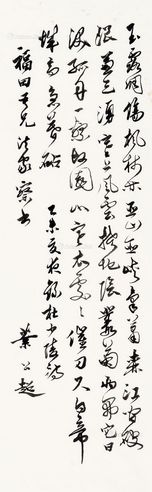 玉露凋傷楓樹林巫山巫峽氣蕭森江間波
浪兼天湧塞上風雲接地陰叢菊兩開他日
淚孤舟一繫故園心寒衣處〻催刀尺白帝
城高急暮砧 夜錄杜少陵詩
福田兄法家
葉公超